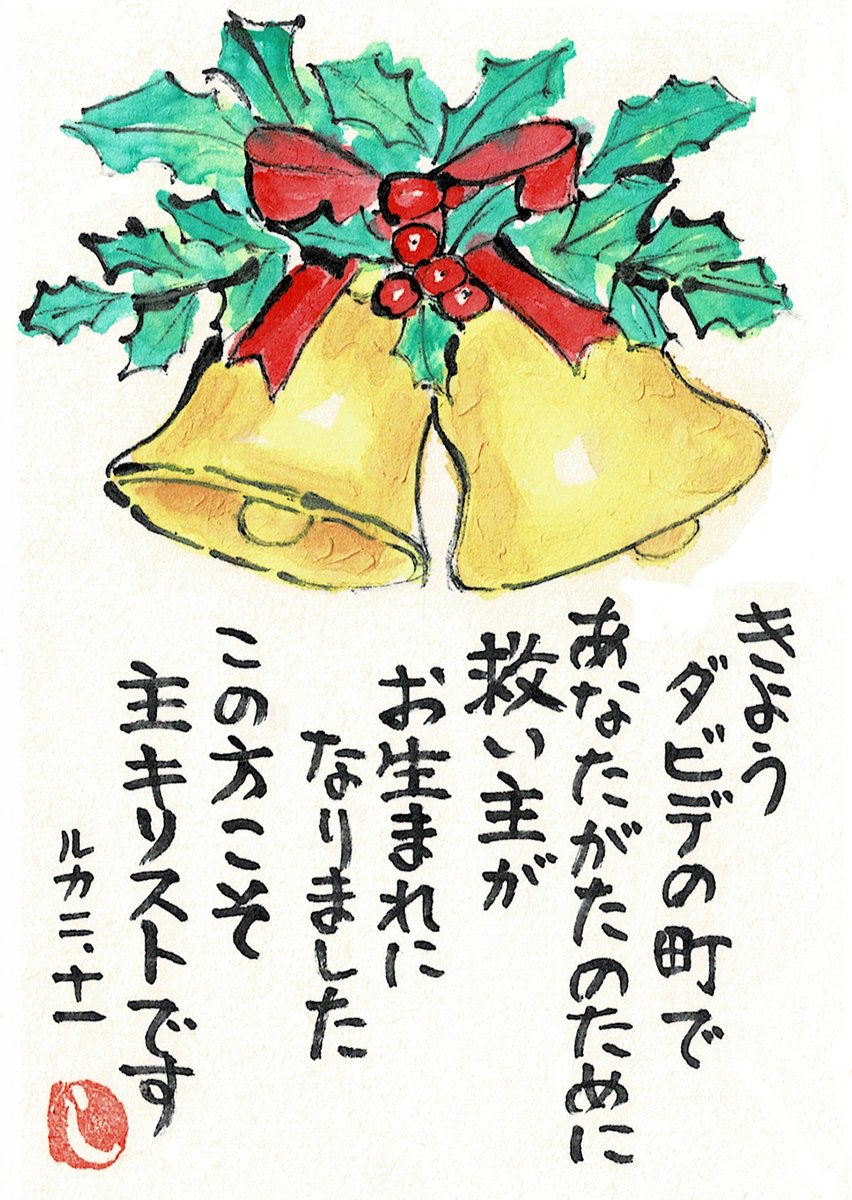 きょう
ダビデの町で
あなたがたのために
救い主が
お生まれに
なりました
この方こそ
主キリストです
ルカ二、十一
し